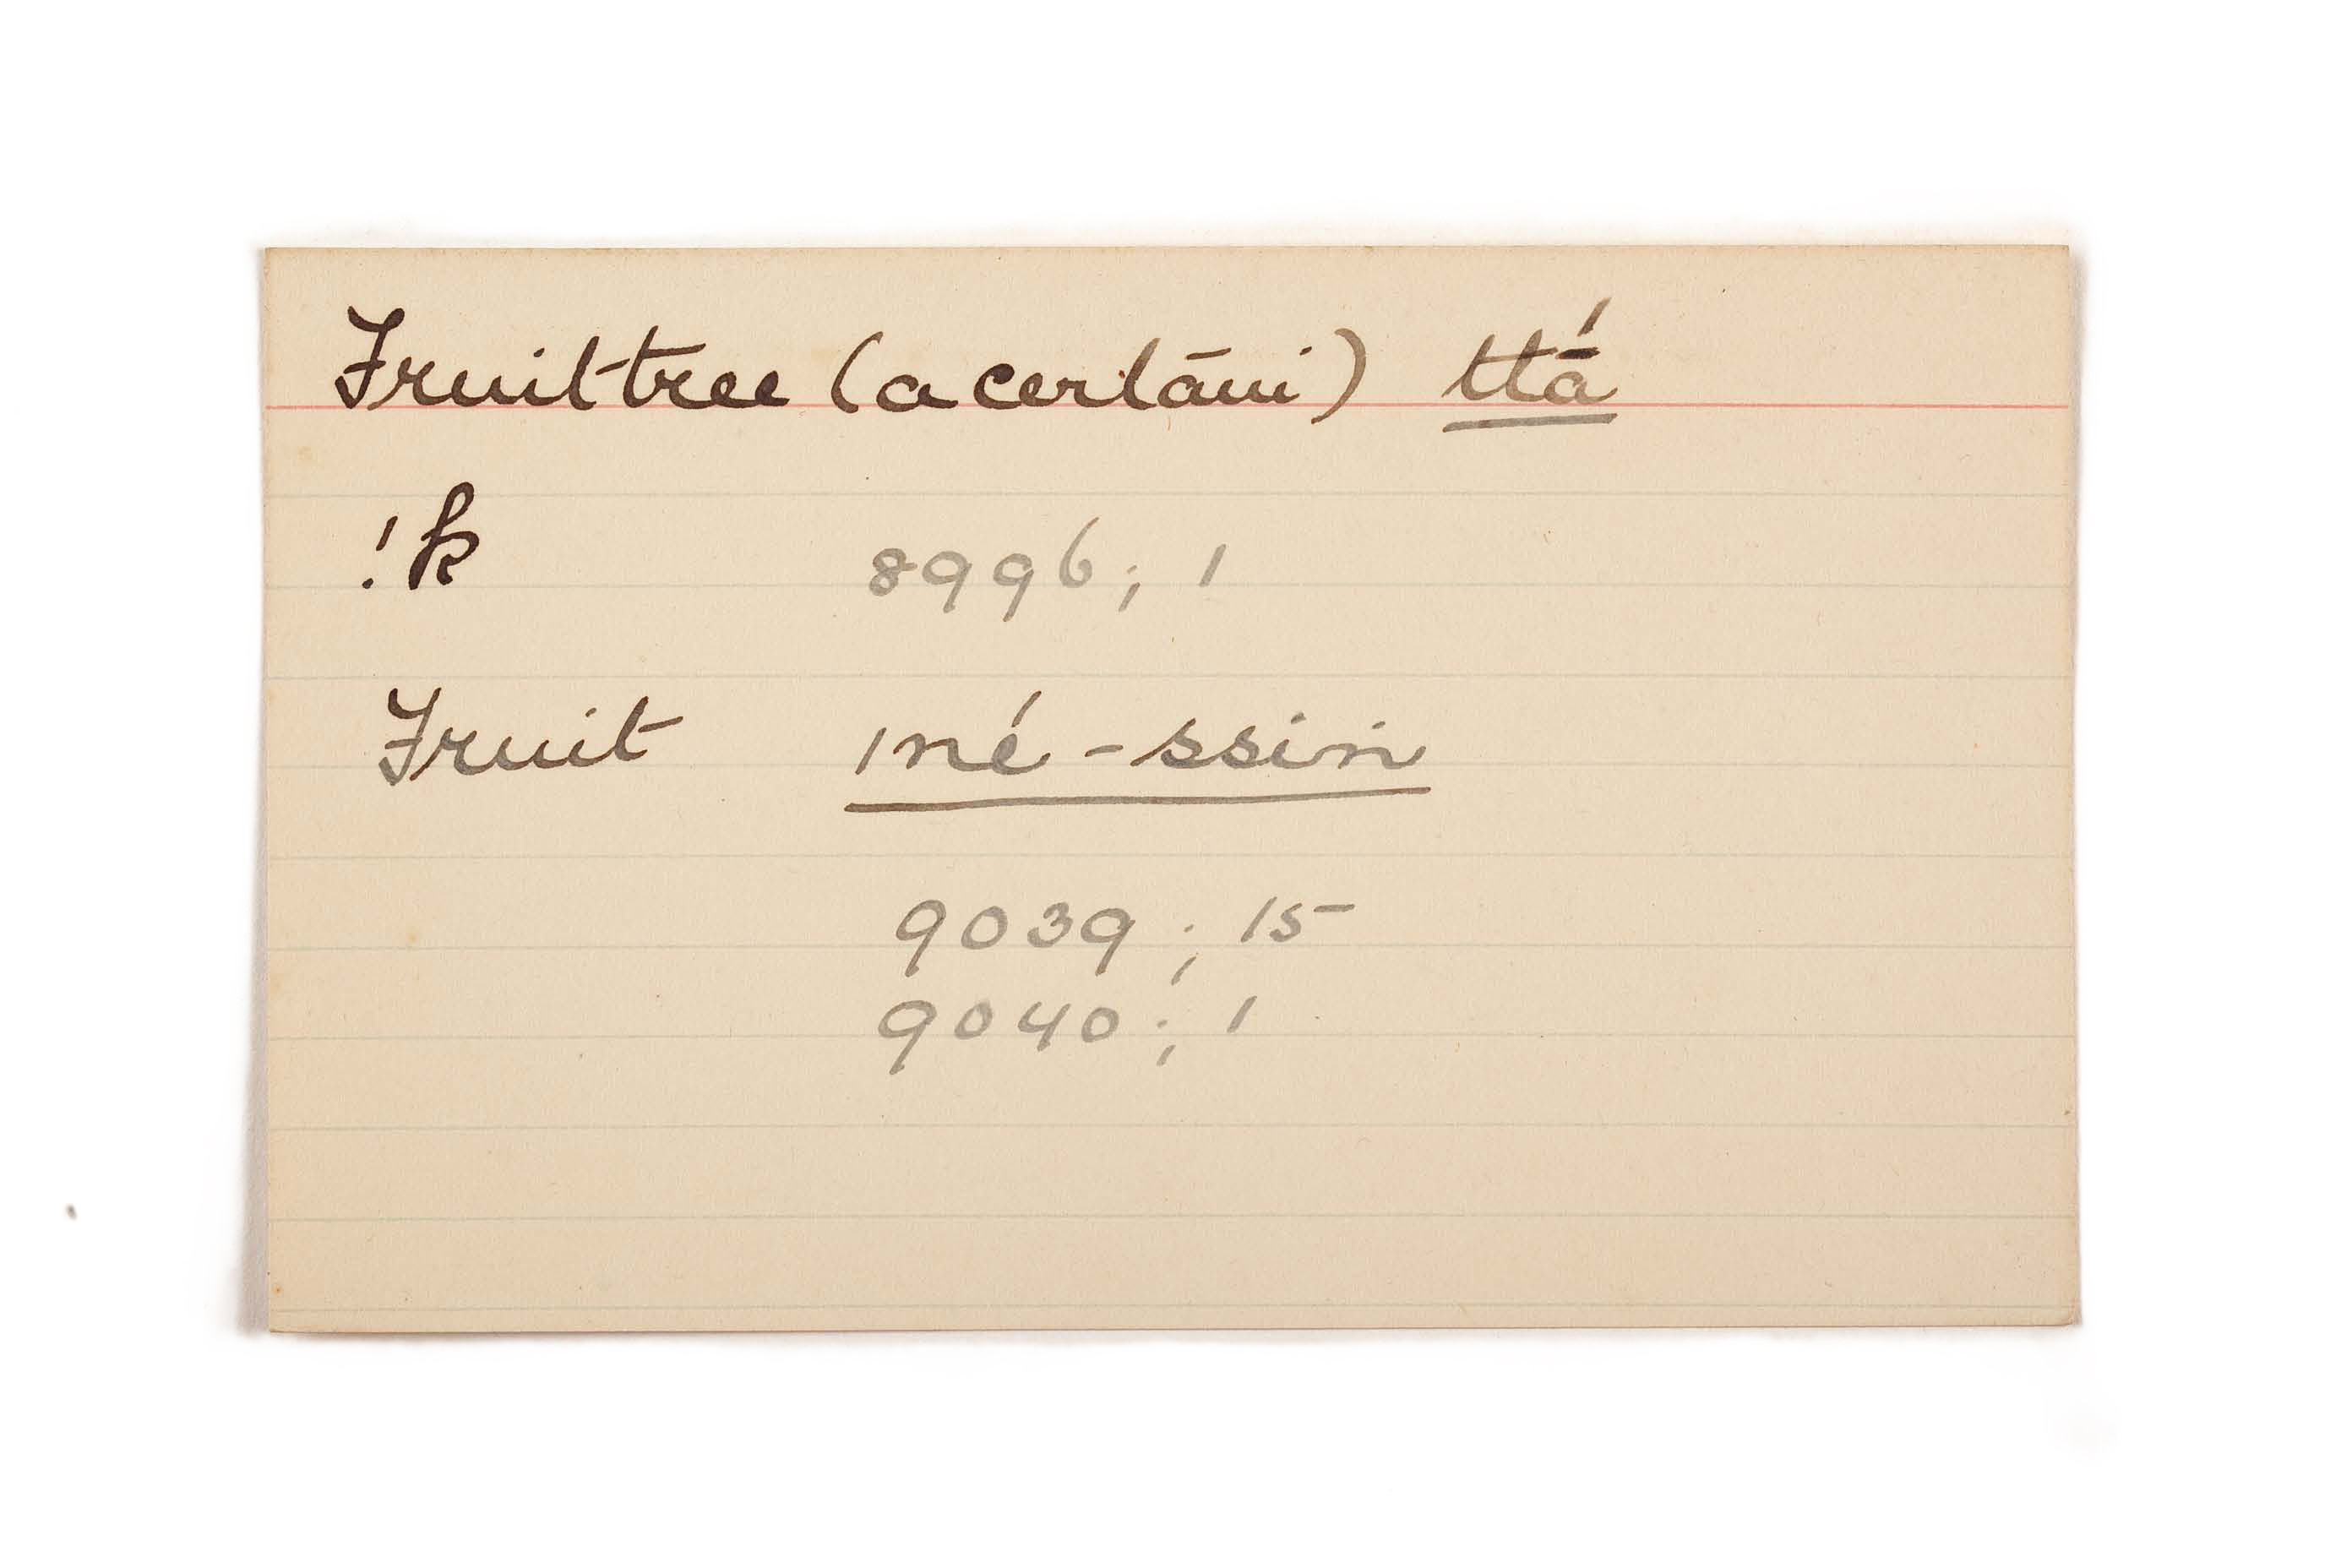 Fruittree (a certāin) ttá̄
!k 8996; 1
Fruit |né-ssin
9039; 15
9040; 1